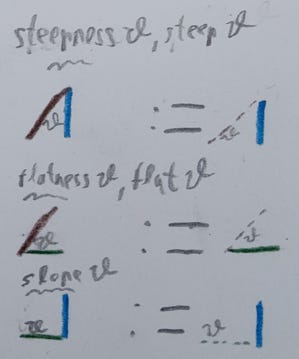 steepness ϑ, steep ϑ
ϑ := ϑ
flatness ϑ, flat ϑ
ϑ := ϑ
slope ϑ
ϑ := ϑ